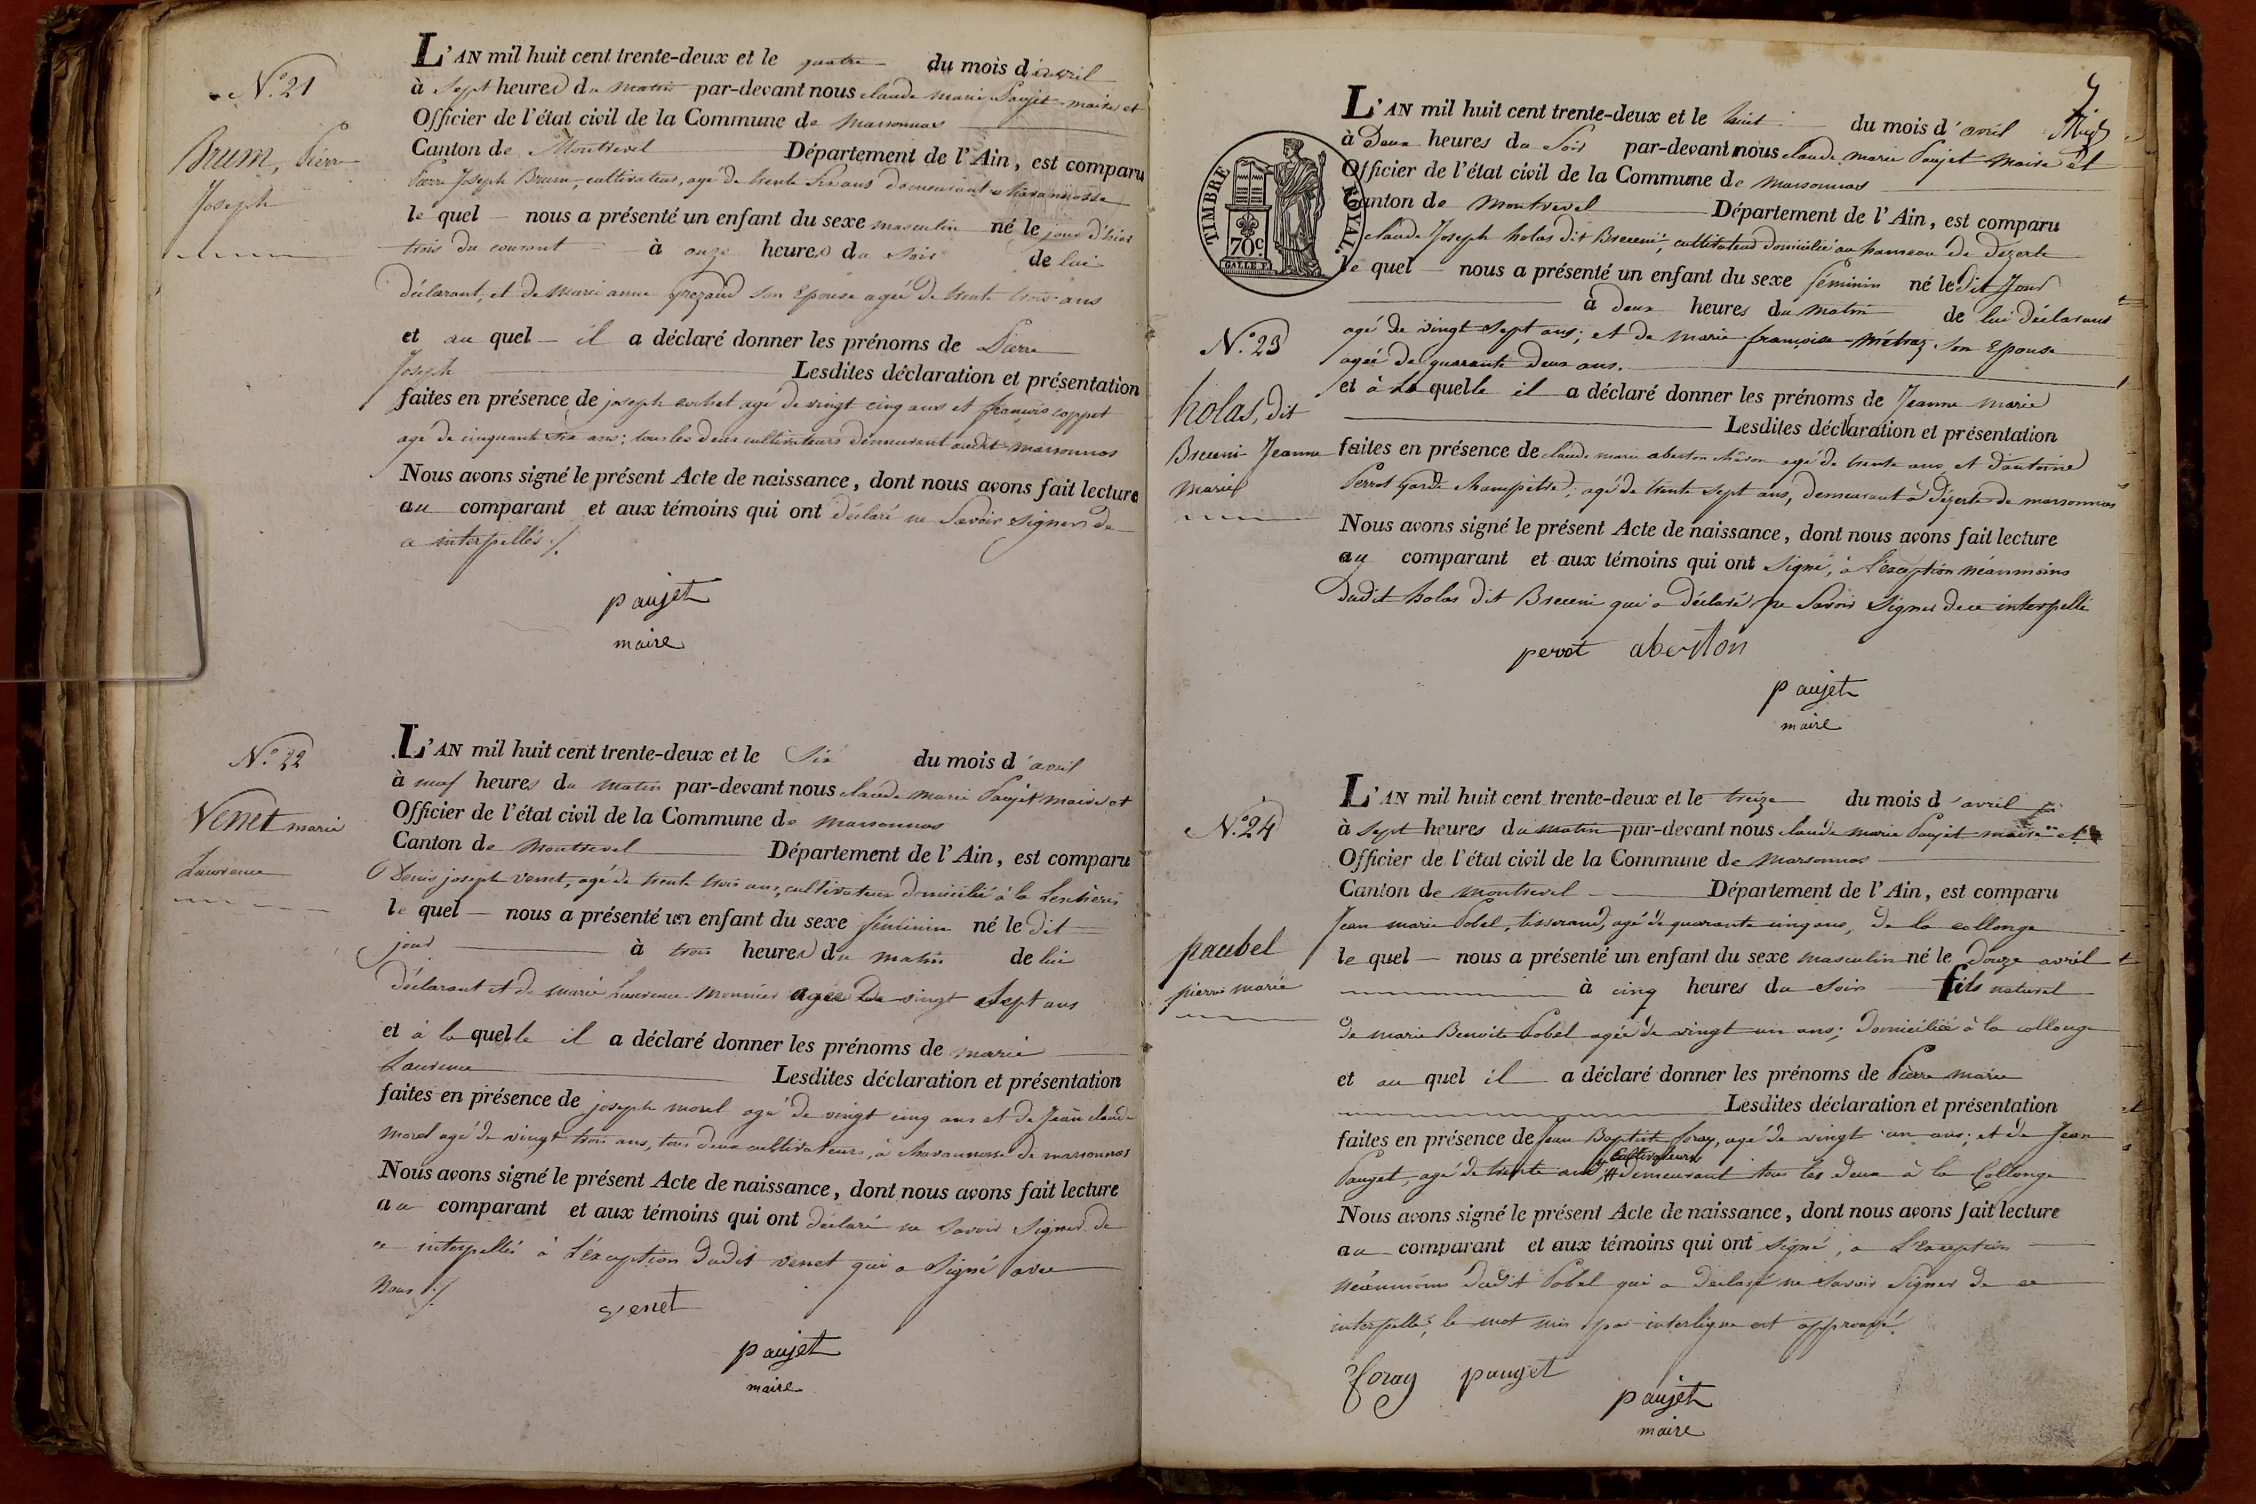 N.° 21
Brum, Pierre
Joseph
L'AN mil huit cent trente-deux et le quatre du mois d'avril
à sept heures du matin par-devant nous claude marie Paujet maire et
Officier de l'état civil de la Commune de marsonnas
Canton de Montrevel Département de l'Ain, est comparu
Pierre Joseph Brum, cultivateur, agé de trente six ans demeurant a
le quel nous a présenté un enfant du sexe masculin né le jour d'hier
trois du courant à onze heures du soir de lui
déclarant, et de marie anne son Epouse agée de trente trois ans
et au quel il a déclaré donner les prénoms de Pierre
Joseph Lesdites déclaration et présentation
faites en présence de joseph agé de vingt cinq ans et françois coppet
agé de cinquante six ans; tous les deux cultivateurs demeurant audit marsonnas
Nous avons signé le présent Acte de naissance, dont nous avons fait lecture
au comparant et aux témoins qui ont déclaré ne Savoir signer de
ce interpellés ./.
paujet
maire
N.° 22
Venet marie
Laurence
L'AN mil huit cent trente-deux et le Six du mois d'avril
à neuf heures du matin par-devant nous claude marie Paujet maire et
Officier de l'état civil de la Commune de marsonnas
Canton de Montrevel Département de l'Ain, est comparu
Denis joseph venet, agé de trente trois ans, cultivateur domicilié à la
le quel nous a présenté un enfant du sexe féminin né le dit
jour à trois heures du matin de lui
déclarant et de marie Laurence Monnier agée De vingt Sept ans
et à la quelle il a déclaré donner les prénoms de marie
Laurence Lesdites déclaration et présentation
faites en présence de joseph morel agé de vingt cinq ans et de Jean claude
Morel agé de vingt trois ans, tous deux cultivateurs, à chavannosse de marsonnas
Nous avons signé le présent Acte de naissance, dont nous avons fait lecture
au comparant et aux témoins qui ont déclaré ne Savoir Signer de
ce interpellés à L'éxception dudit venet qui a Signé avec
Nous ./.
venet
paujet
maire
7
TIMBRE ROYAL.
70c.
N.° 23
holas, dit
Breveni Jeanne
Marie
L'AN mil huit cent trente-deux et le huit du mois d'avril
à Deux heures du Soir par-devant nous claude marie Paujet maire et
Officier de l'état civil de la Commune de marsonnas
Canton de Montrevel Département de l'Ain, est comparu
claude Joseph holas dit Breveni, cultivateur domicilié au hameau de dézerte
le quel nous a présenté un enfant du sexe féminin né le dit Jour
à deux heures du matin de lui déclarant
agé de vingt sept ans; et de marie françoise métraz son Epouse
agée de quarante deux ans.
et à la quelle il a déclaré donner les prénoms de Jeanne marie
Lesdites déclaration et présentation
faites en présence de claude marie aberton agé de trente ans et d'antoine
Perrot Garde champêtre, agé de trente sept ans, demeurant à dézerte de marsonnas
Nous avons signé le présent Acte de naissance, dont nous avons fait lecture
au comparant et aux témoins qui ont Signé, à l'exception néanmoins
dudit holas dit Breveni qui a déclaré ne Savoir Signer de ce interpellé
perot aberton
paujet
maire
N.° 24
paubel
pierre marie
L'AN mil huit cent trente-deux et le treize du mois d'avril
à sept heures du matin par-devant nous claude marie Paujet maire et
Officier de l'état civil de la Commune de marsonnas
Canton de montrevel Département de l'Ain, est comparu
Jean marie Pobel, tisserand, agé de quarante cinq ans, de la collonge
le quel nous a présenté un enfant du sexe masculin né le douze avril
à cinq heures du Soir fils naturel
de marie Benoite Pobel agée de vingt un ans; domiciliée à la collonge
et au quel il a déclaré donner les prénoms de Pierre marie
Lesdites déclaration et présentation
faites en présence de Jean Baptiste foray, agé de vingt un ans; et de Jean
cultivateurs
Pauget, agé de trente ans, demeurant tous les deux à la Collonge
Nous avons signé le présent Acte de naissance, dont nous avons fait lecture
au comparant et aux témoins qui ont Signé, a L'exception
néanmoins dudit Pobel qui a déclaré ne Savoir Signer de ce
interpellé, le mot mis par interligne est approuvé.
foray pauget
paujet
maire